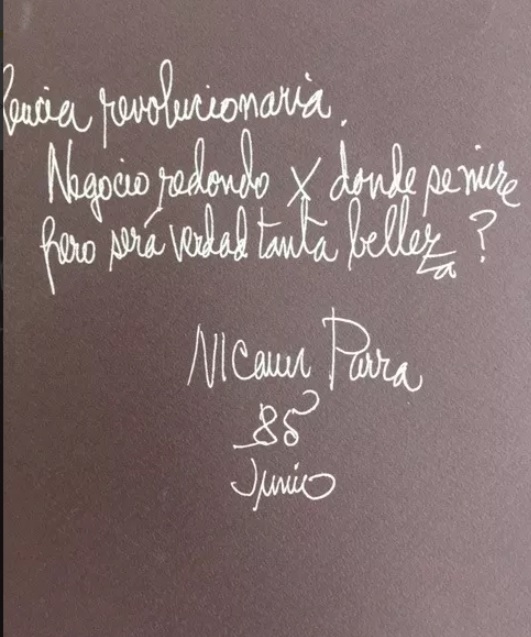 revolucionaria.
Negocio redondo X donde se mire
pero será verdad tanta belleza?
Nicanor Parra
85
Junio